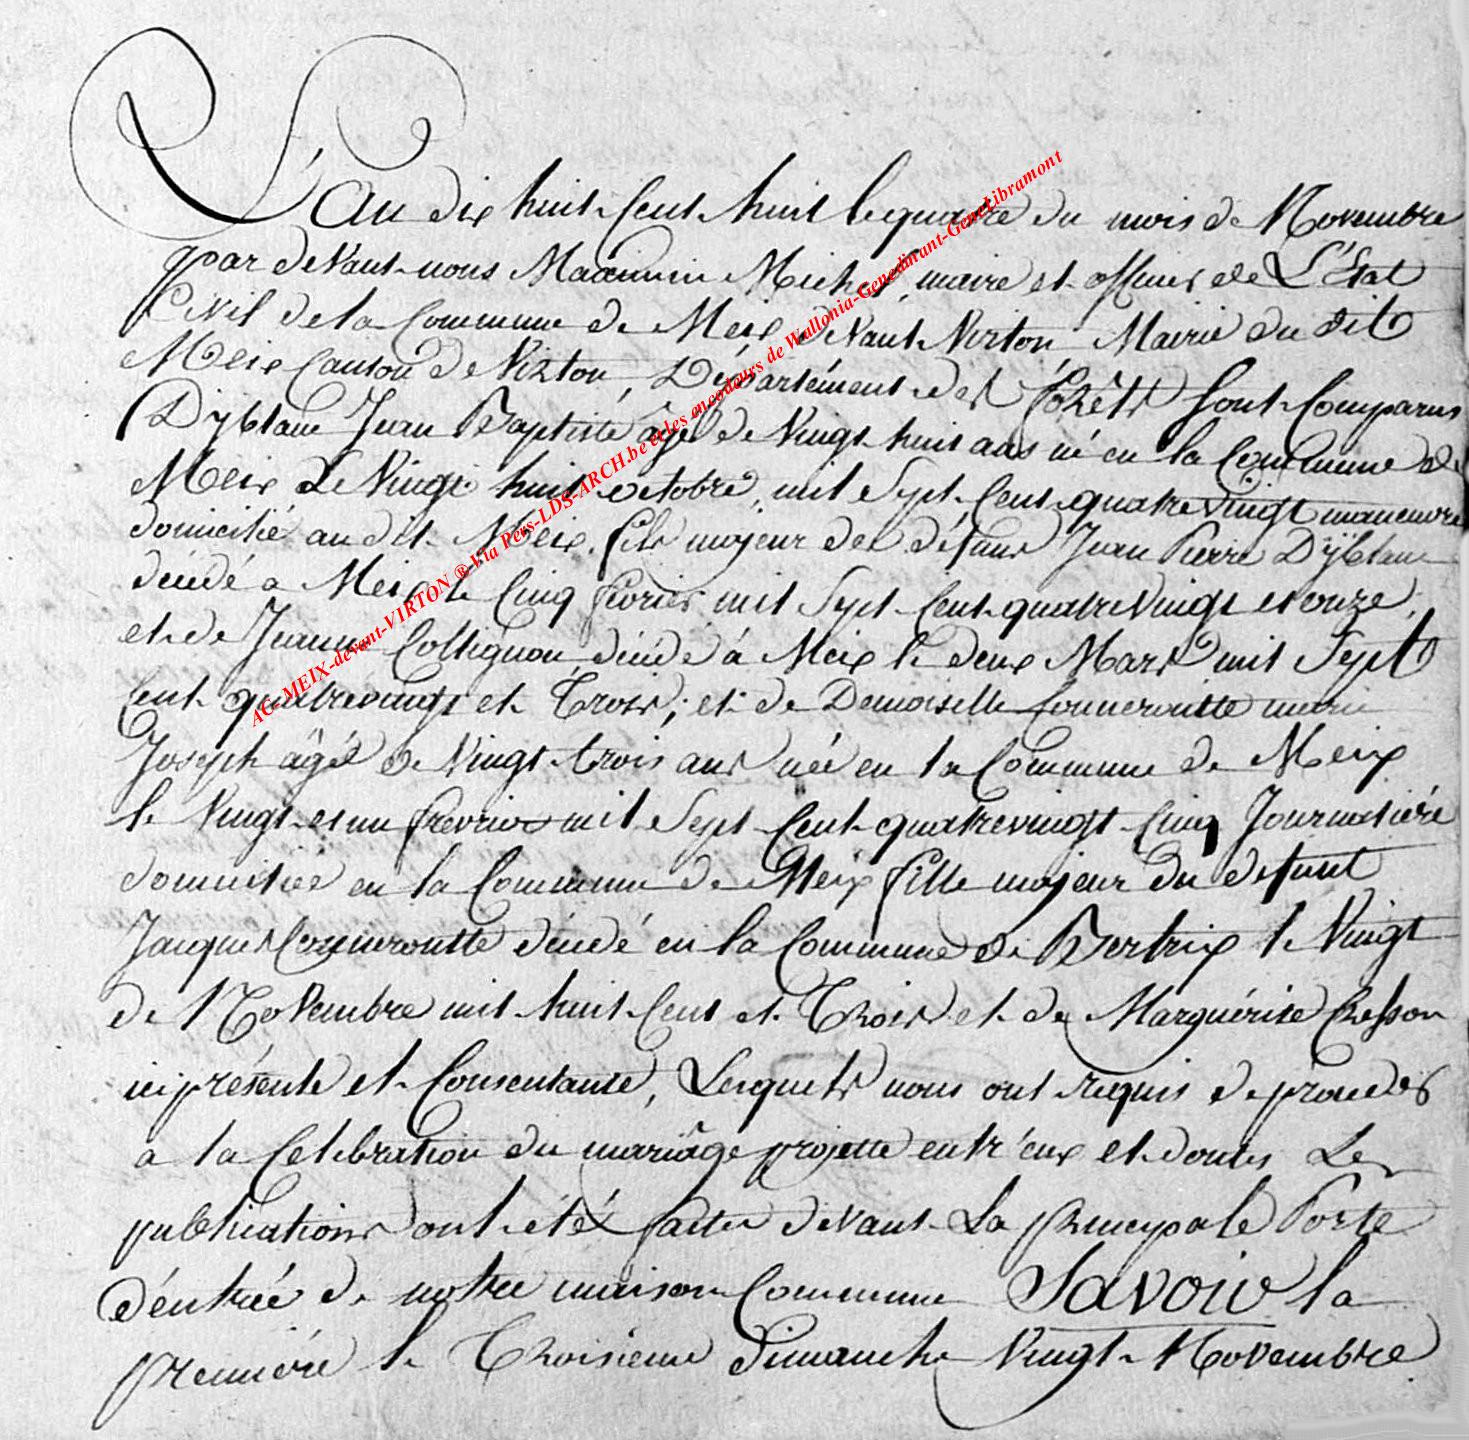 L'an dix huit Cent huit le quatre du mois de Novembre
par devant nous Maximin Michel, maire et officier de L'Etat
Civil de la Commune de Meix devant Virton Mairie du dit
Meix Canton de Virton, Département des forêts sont Comparus
Dyblanc Jean Baptiste âgé de vingt huit ans né en la Commune de
Meix Le vingt huit octobre, mil Sept Cent quatre vingt manœuvre
domicilié au dit Meix fils majeur des défunt Jean Pierre Dÿblanc
décédé a Meix le Cinq février mil Sept Cent quatre vingt et onze,
et de Jeanne Collignon décédé à Meix le deux Mars mil Sept
Cent quatrevingt et Trois; et de Demoiselle Conneroutte marie
Joseph âgée de vingt trois ans née en la Commune de Meix
le vingt et un frevrier mil Sept Cent quatrevingt Cinq Journalière
domiciliée en la Commune de Meix fille majeur du defunt
Jacques Conneroutte décédé en la Commune de Bertrix le vingt
de Novembre mil huit Cent et Trois et de Marguérite Chesson
ici présente et Consentante, Lesquels nous ont requis de proceder
a la Celebration du mariâge projetté entr'eux et donts Les
publications ont été faites devant La principale Porte
d'éntrée de notre maison Commune Savoir la
premiére le Troisieme dimanche vingt Novembre
AC-MEIX-devant-VIRTON ® Via Pers-LDS-ARCH.be et les encodeurs de Wallonia-Genedinant-GeneLibramont